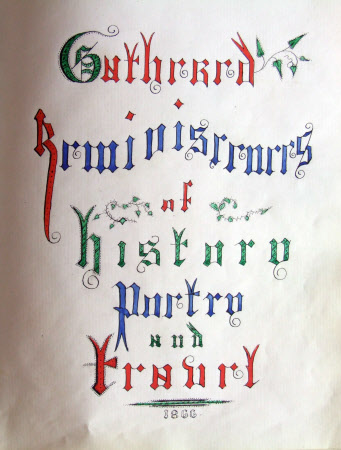 Gathered
Reminiscences
of
History
Poetry
and
Travel
1866